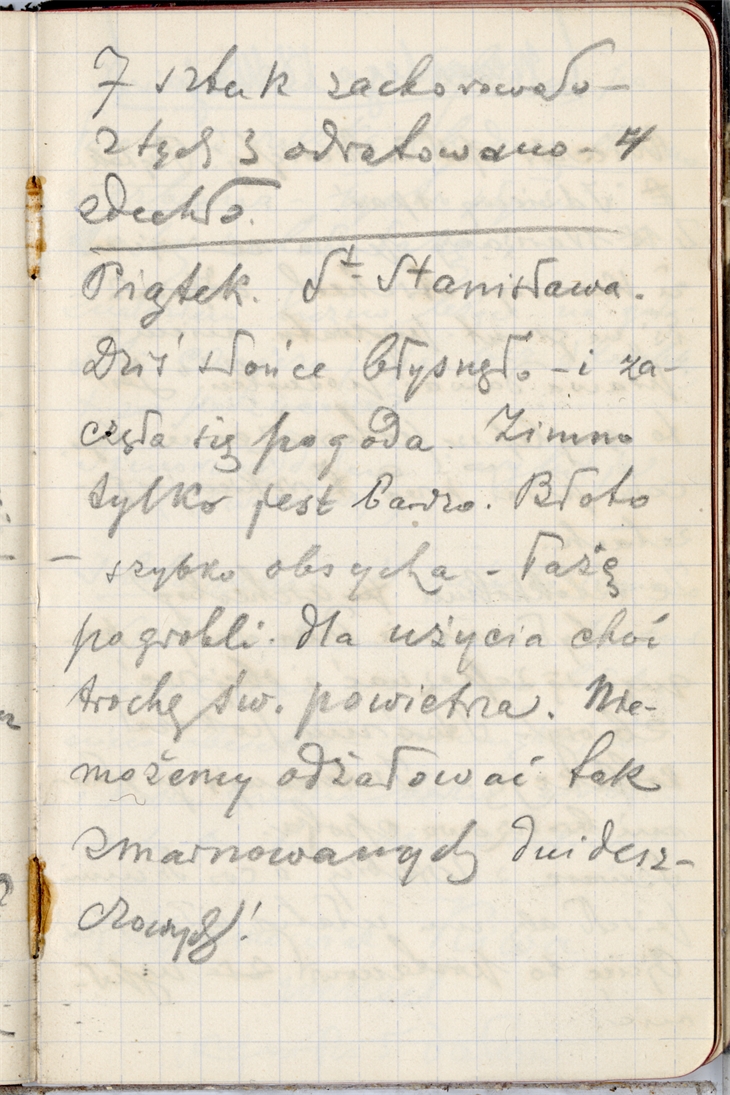 7 sztuk zachorowało –
z tych 3 odratowano – 4
zdechło.
Piątek. St. Stanisława.
Dziś słońce błysnęło – i za-
częła się pogoda. Zimno
tylko jest bardzo. Błoto
– szybko obsycha – Łażę
po grobli. dla użycia choć
trochę św. powietrza. Nie-
możemy odżałować tak
zmarnowanych dni desz-
czowych!